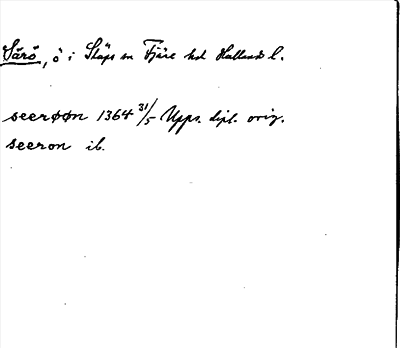 Särö, ö i Släps sn Fjäre hd Hallands l.
seerøøn 1364 31/5 Upps. dipl. orig.
seeron ib.